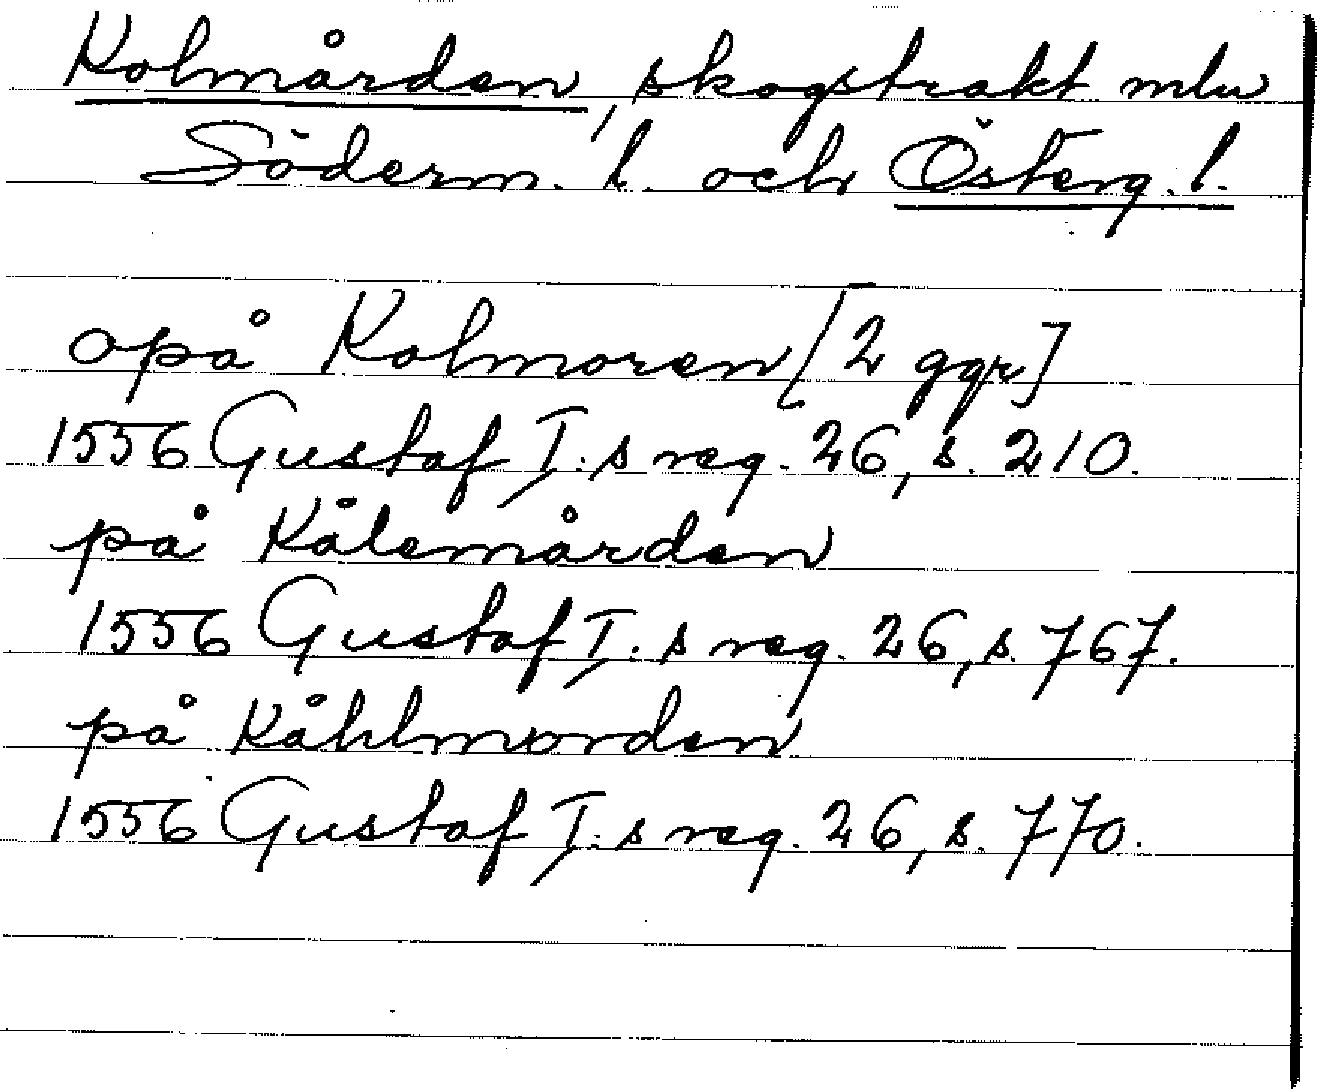 Kolmården, skogstrakt mln
Söderm. l. och Österg. l.
opå Kolmoren [2 ggr]
1556 Gustaf I:s reg. 26, s. 210.
på Kålemården
1556 Gustaf I:s reg. 26, s. 767.
på Kåhlmorden
1556 Gustaf I:s reg. 26, s. 770.